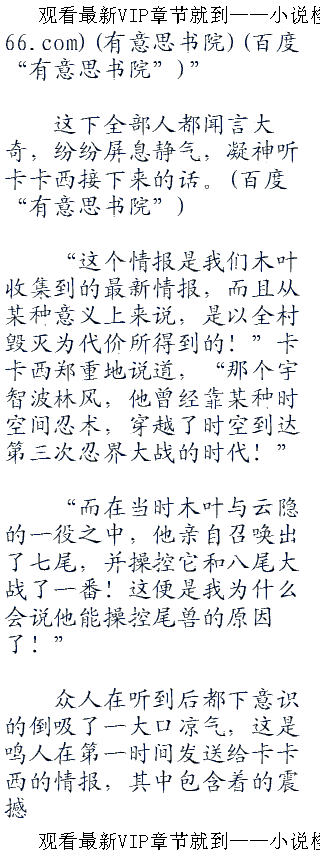 观看最新VIP章节就到——小说
66.com)(有意思书院)(百度
“有意思书院”)”
这下全部人都闻言大
奇，纷纷屏息静气，凝神听
卡卡西接下来的话。(百度
“有意思书院”)
“这个情报是我们木叶
收集到的最新情报，而且从
某种意义上来说，是以全村
毁灭为代价所得到的！”卡
卡西郑重地说道，“那个宇
智波林风，他曾经靠某种时
空间忍术，穿越了时空到达
第三次忍界大战的时代！”
“而在当时木叶与云隐
的一役之中，他亲自召唤出
了七尾，并操控它和八尾大
战了一番！这便是我为什么
会说他能操控尾兽的原因
了！”
众人在听到后都下意识
的倒吸了一大口凉气，这是
鸣人在第一时间发送给卡卡
西的情报，其中包含着的震
撼
观看最新VIP章节就到——小说